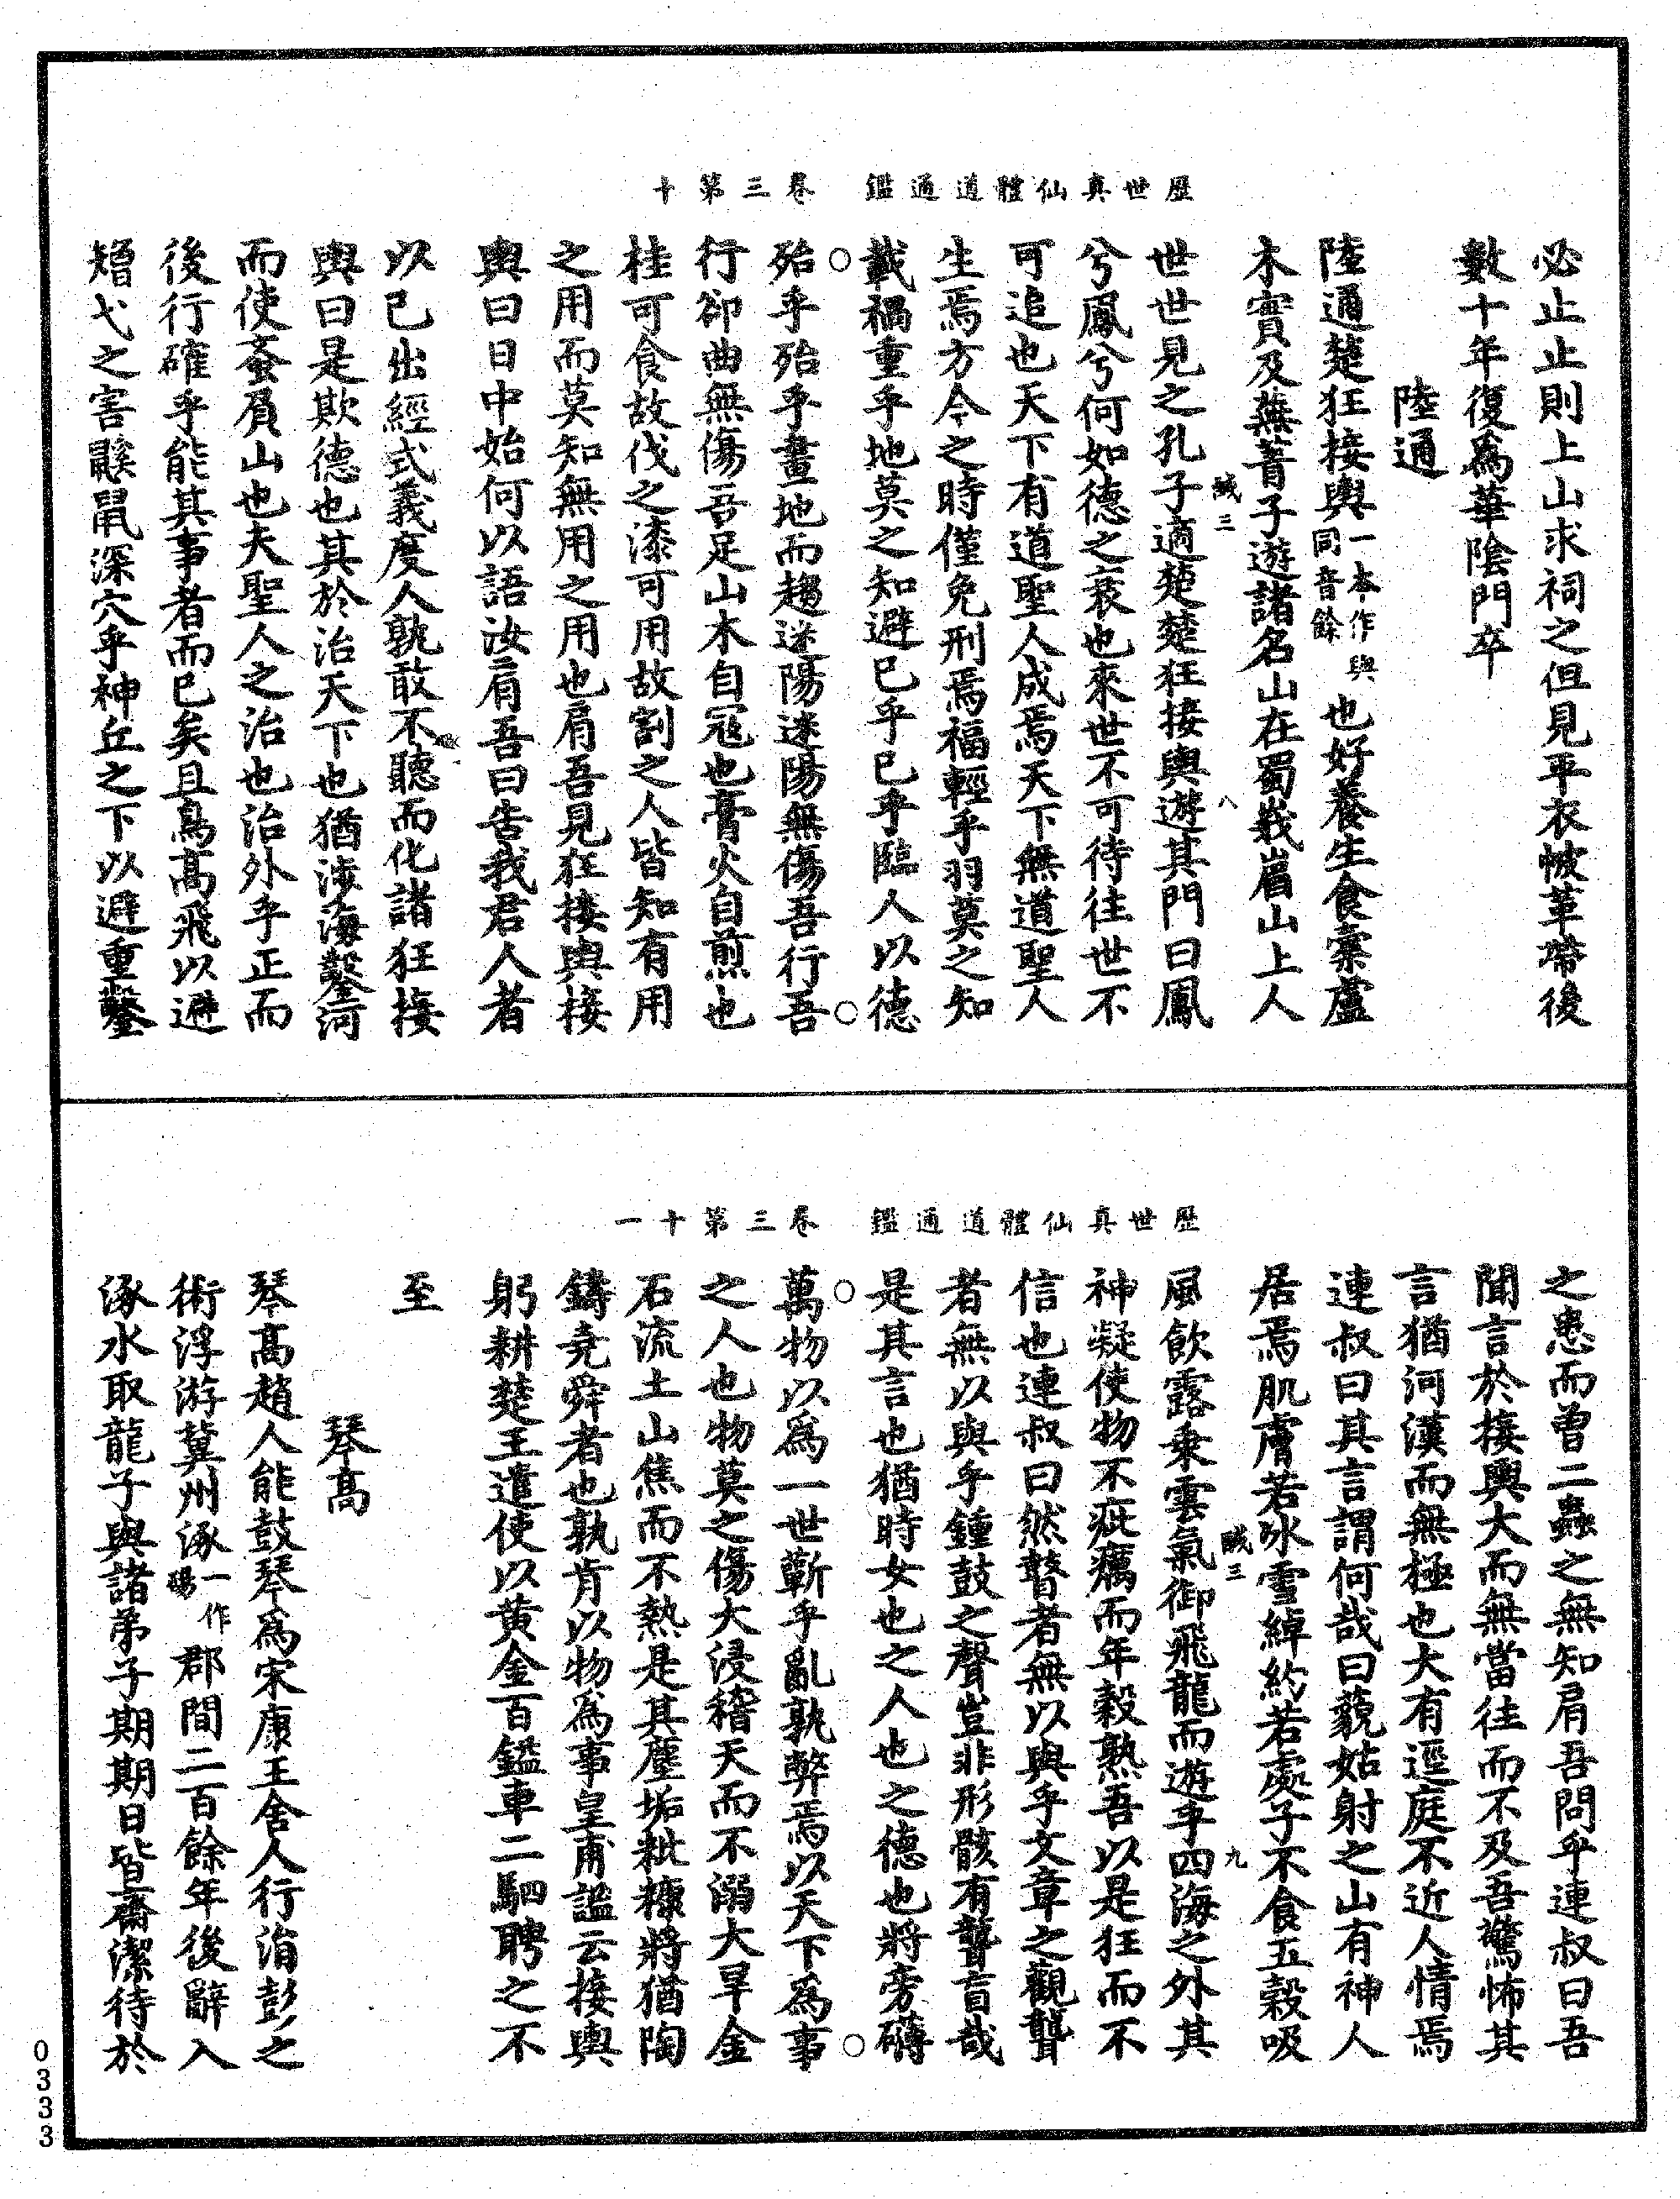 歷世真仙體道通鑑　卷三第十
必止止則上山求祠之但見平衣帔革帶後
數十年復為華陰門卒
陸通
陸通楚狂接輿一本作與同音餘也好養生食橐盧
木實及蕪菁子遊諸名山在蜀峩嵋山上人
世世見之孔子適楚楚狂接輿遊其門曰鳳
兮鳳兮何如德之衰也來世不可待往世不
可追也天下有道聖人成焉天下無道聖人
生焉方今之時僅免刑焉福輕乎羽莫之知
載禍重乎地莫之知避已乎已乎臨人以德
殆乎殆乎畫地而趨迷陽迷陽無傷吾行吾
行卻曲無傷吾足山木自冠也膏火自煎也
桂可食故伐之漆可用故割之人皆知有用
之用而莫知無用之用也肩吾見狂接輿接
輿曰日中始何以語汝肩吾曰告我君人者
以己出經式義度人孰敢不聽而化諸狂接
輿曰是欺德也其於治天下也猶涉海鑿河
而使蚉負山也夫聖人之治也治外乎正而
後行確乎能其事者而已矣且鳥高飛以避
矰弋之害鼷鼠深穴乎神丘之下以避重鑿
鹹三
八
歷世真仙體道通鑑　卷三第十一
之患而曾二蟲之無知肩吾問乎連叔曰吾
聞言於接輿大而無當往而不及吾驚怖其
言猶河漢而無極也大有逕庭不近人情焉
連叔曰其言謂何哉曰藐姑射之山有神人
居焉肌膚若冰雪綽約若處子不食五穀吸
風飲露乘雲氣御飛龍而遊乎四海之外其
神凝使物不疵癘而年穀熟吾以是狂而不
信也連叔曰然瞽者無以與乎文章之觀聾
者無以與乎鍾鼓之聲豈非形骸有聾盲哉
是其言也猶時女也之人也之德也將旁礴
萬物以為一世蘄乎亂孰弊焉以天下為事
之人也物莫之傷大浸稽天而不溺大旱金
石流土山焦而不熱是其塵垢粃糠將猶陶
鑄堯舜者也孰肯以物為事皇甫謐云接輿
躬耕楚王遣使以黃金百鎰車二駟聘之不
至
琴高
琴高趙人能鼓琴為宋康王舍人行涓彭之
術浮游冀州涿一作碭郡間二百餘年後辭入
涿水取龍子與諸弟子期期日皆齋潔待於
鹹三
九
0333